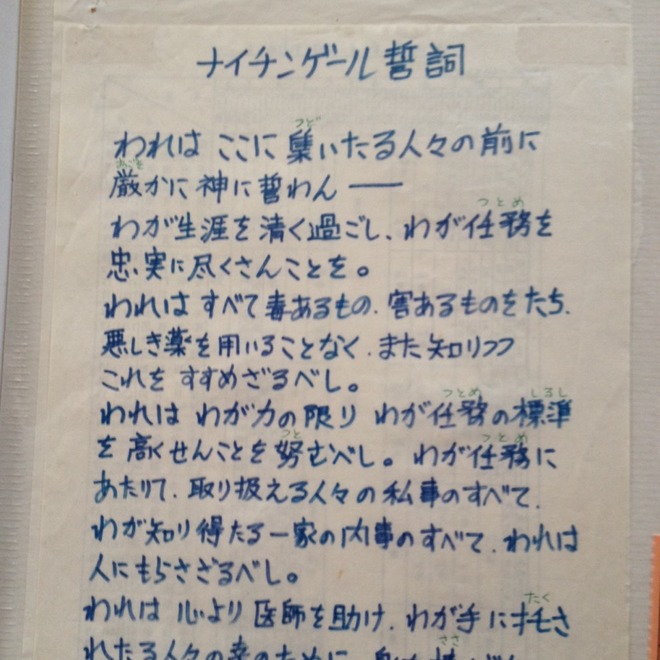 ナイチンゲール誓詞
われは ここに 集いたる人々の前に
厳かに神に誓わん――
わが生涯を清く過ごし、わが任務を
忠実に尽くさんことを。
われは すべて毒あるもの、害あるものをたち、
悪しき薬を用いることなく、また知りつつ
これを すすめざるべし。
われは わが力の限り わが任務の標準
を高くせんことを努むべし。わが任務に
あたりて、取り扱える人々の私事のすべて、
わが知り得たる一家の内事のすべて、われは
人にもらさざるべし。
われは 心より医師を助け、わが手に托さ
れたる人々の幸のために、身を捧げん